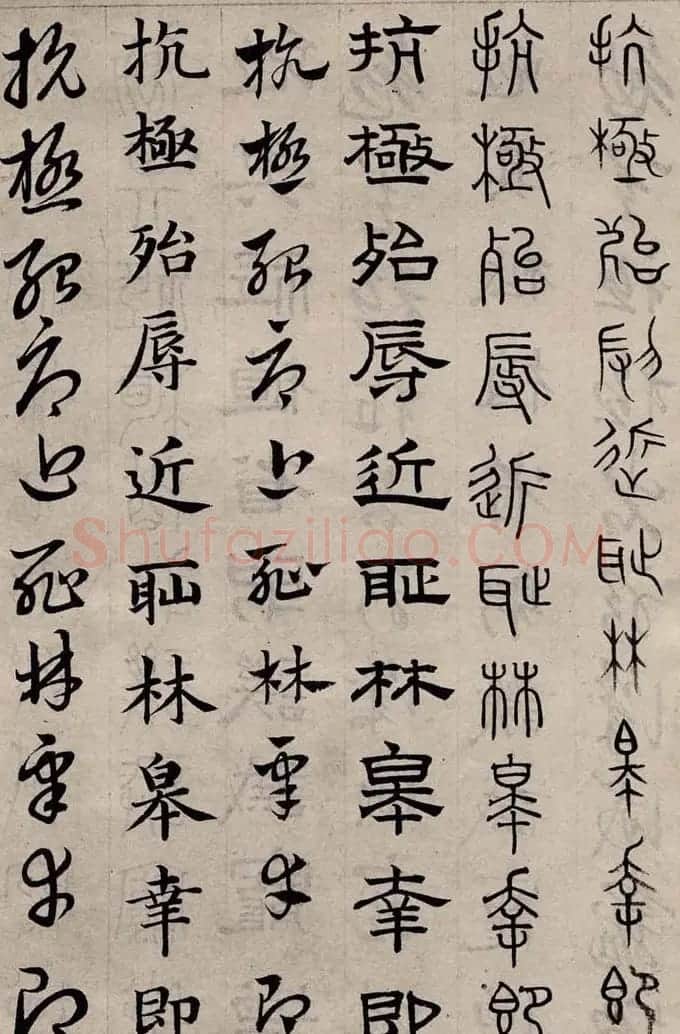 抗極殆辱近耻林皋幸即
抗極殆辱近耻林皋幸即
抗極殆辱近耻林皋幸即
抗極殆辱近耻林皋幸即
抗極殆辱近耻林皋幸即
抗極殆辱近耻林皋幸即
Shufaziliao.COM